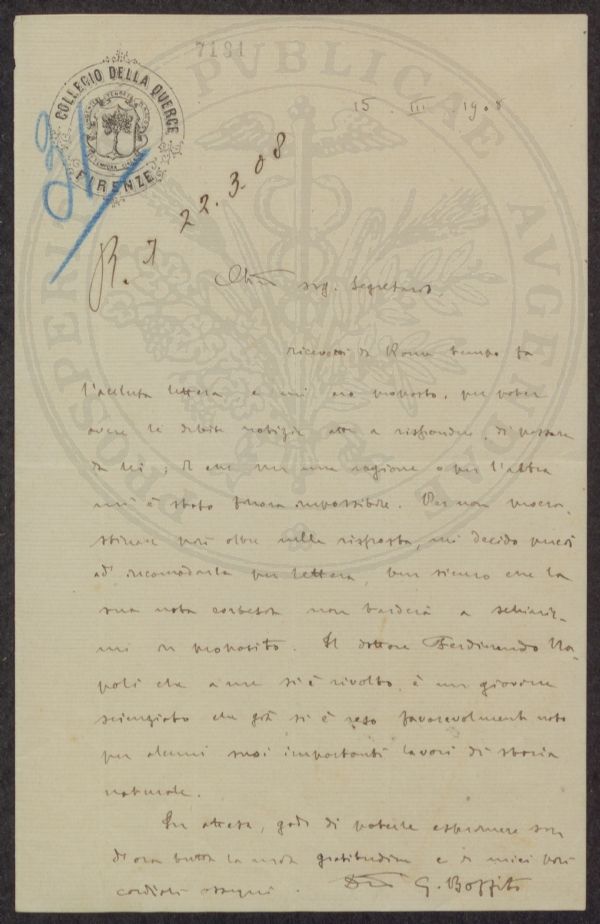 7181
COLLEGIO DELLA QUERCE
FIRENZE
15 . III . 1908
R. I 22.3.08
sig. Segretario.
ricevetti da Roma tempo fa
l'acclusa lettera e mi ero proposto, per poter
avere le debite notizie atte a rispondere, di passare
da lei ; il che per una ragione o per l'altra
mi è stato finora impossibile. Per non procra-
stinare più oltre nella risposta, mi decido quindi
ad incomodarla per lettera, ben sicuro che la
sua nota cortesia non tarderà a schiarir-
mi in proposito. Il dottore Ferdinando Na-
poli che a me si è rivolto, è un giovane
scienziato che già si è reso favorevolmente noto
per alcuni suoi importanti lavori di storia
naturale.
In attesa, godo di poterle esprimere sin
d'ora tutta la mia gratitudine e i miei più
cordiali ossequi. G. Boffito
PROSPERITATI PVBLICAE AVGENDAE